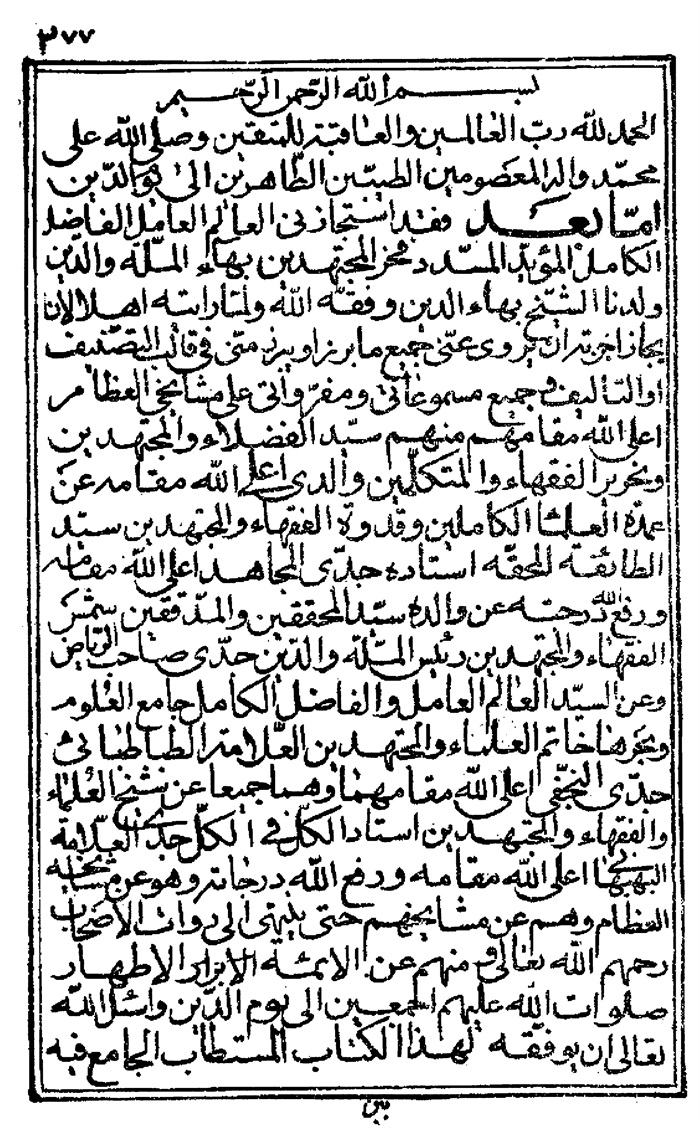 ٣٧٧
بسم الله الرحمن الرحيم
الحمد لله رب العالمين والعاقبة للمتقين وصلى الله على
محمد واله المعصومين الطيبين الطاهرين الى يوم الدين
امّا بعد فقد استجازنى العالم العامل الفاضل
الكامل المؤيد المسدد فخر المجتهدين بهاء الملة والدين
ولدنا الشيخ بهاء الدين وفقه الله ولمّا رايته اهلا لان
يجاز اجزته ان يروى عنّى جميع ما برز او يبرز منّى فى قالب التصنيف
او التاليف و جميع مسموعاتى ومقرواتى على مشايخى العظام
اعلى الله مقامهم منهم سيّد الفضلاء والمجتهدين
ونحرير الفقهاء والمتكلّمين والدى اعلى الله مقامه عن
عمدة العلماء الكاملين وقدوة الفقهاء والمجتهدين سيّد
الطائفة المحقّه استاده جدّى المجاهد اعلى الله مقامه
ورفع الله درجته عن والده سيّد المحققين والمدققين شمس
الفقهاء والمجتهدين رئيس الملّة والدين جدّى صاحب الرياض
وعن السيّد العالم العامل والفاضل الكامل جامع العلوم
وبحرها خاتم العلماء والمجتهدين العلّامة الطباطبائى
جدّى النجفى اعلى الله مقامهما وهما جميعا عن شيخ العلماء
والفقهاء والمجتهدين استاد الكلّ فى الكلّ جدّى العلّامة
البهبهانى اعلى الله مقامه ورفع الله درجاته وهو عن مشايخه
العظام وهم عن مشايخهم حتى ينتهى الى روات الاصحاب
رحمهم الله تعالى و منهم عن الائمّة الابرار الاطهار
صلوات الله عليهم اجمعين الى يوم الدّين واسئل الله
تعالى ان يوفقه لهذا الكتاب المستطاب الجامع فيه
بين